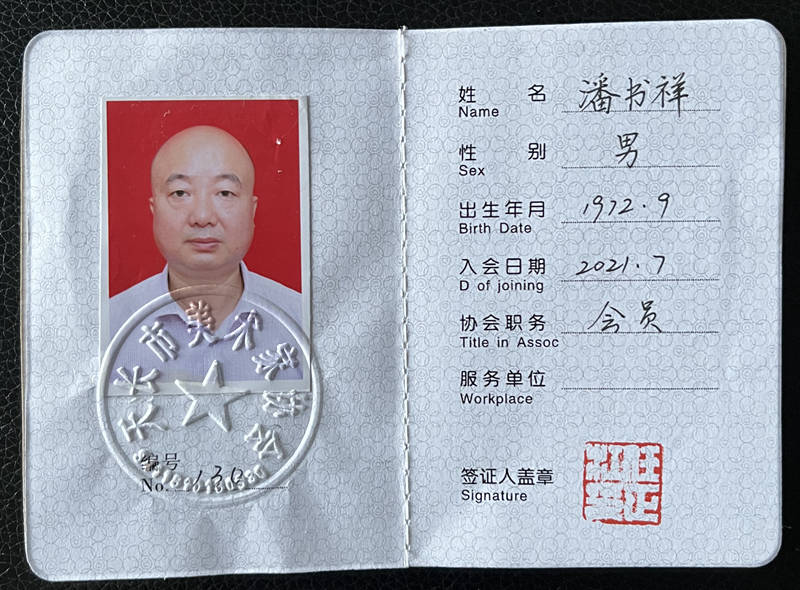 天长市美术家协会
编号
No. 130
姓 名 潘书祥
Name
性 别 男
Sex
出生年月 1972.9
Birth Date
入会日期 2021.7
D of joining
协会职务 会员
Title in Assoc
服务单位
Workplace
签证人盖章
Signature